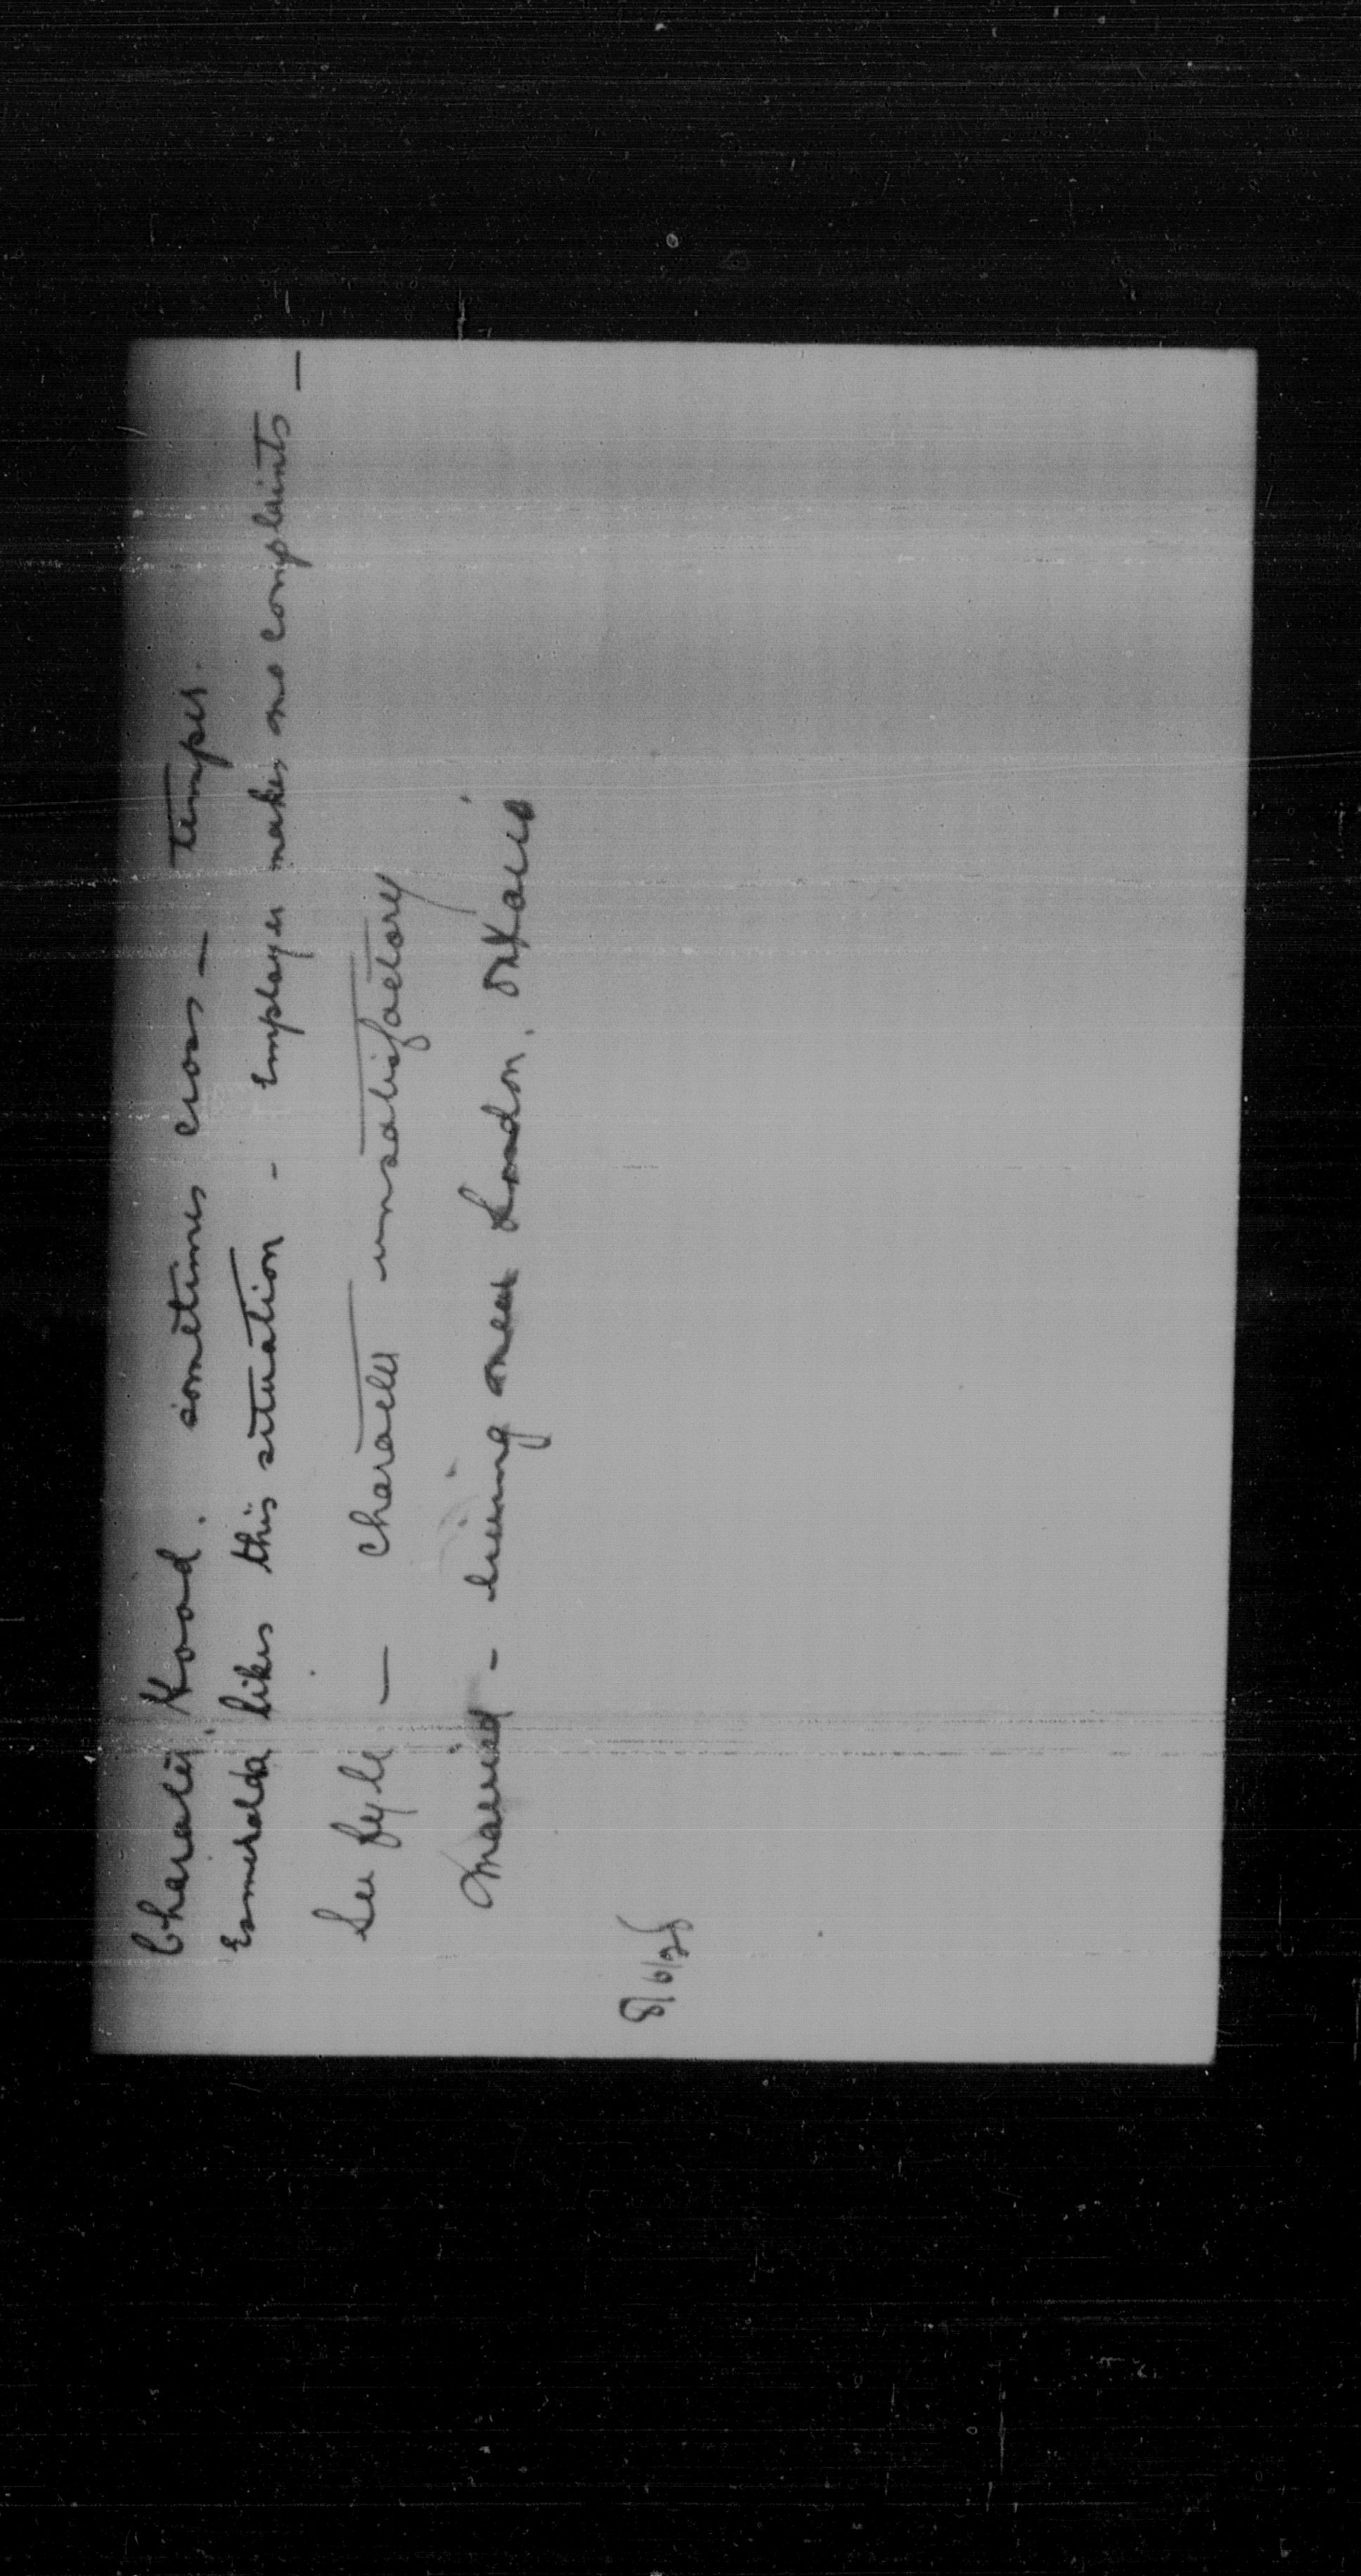 Character Good. sometimes cross — temper.
Esmeralda likes this situation - Employer makes no complaints —
See fyle — character unsatisfactory
Married - living near London, Ontario
8/6/25